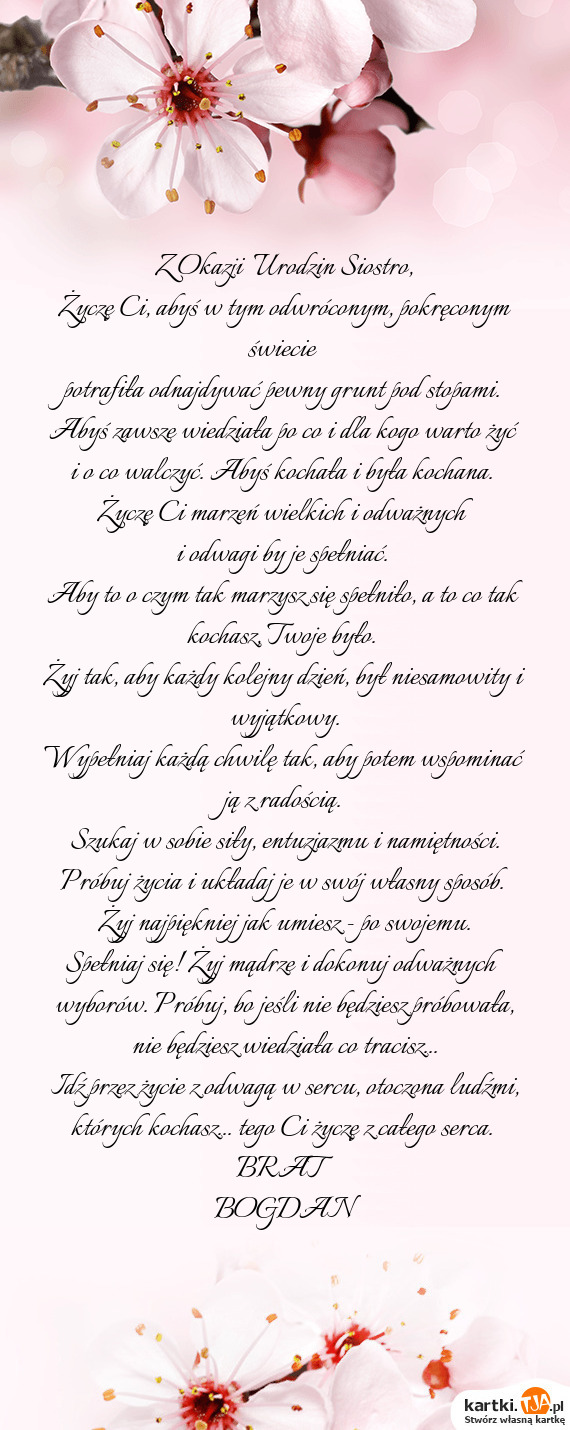 Z Okazji Urodzin Siostro,
Życzę Ci, abyś w tym odwróconym, pokręconym
świecie
potrafiła odnajdywać pewny grunt pod stopami.
Abyś zawsze wiedziała po co i dla kogo warto żyć
i o co walczyć. Abyś kochała i była kochana.
Życzę Ci marzeń wielkich i odważnych
i odwagi by je spełniać.
Aby to o czym tak marzysz się spełniło, a to co tak
kochasz, Twoje było.
Żyj tak, aby każdy kolejny dzień, był niesamowity i
wyjątkowy.
Wypełniaj każdą chwilę tak, aby potem wspominać
ją z radością.
Szukaj w sobie siły, entuzjazmu i namiętności.
Próbuj życia i układaj je w swój własny sposób.
Żyj najpiękniej jak umiesz - po swojemu.
Spełniaj się! Żyj mądrze i dokonuj odważnych
wyborów. Próbuj, bo jeśli nie będziesz próbowała,
nie będziesz wiedziała co tracisz...
Idź przez życie z odwagą w sercu, otoczona ludźmi,
których kochasz... tego Ci życzę z całego serca.
BRAT
BOGDAN
kartki.TJA.pl
Stwórz własną kartkę